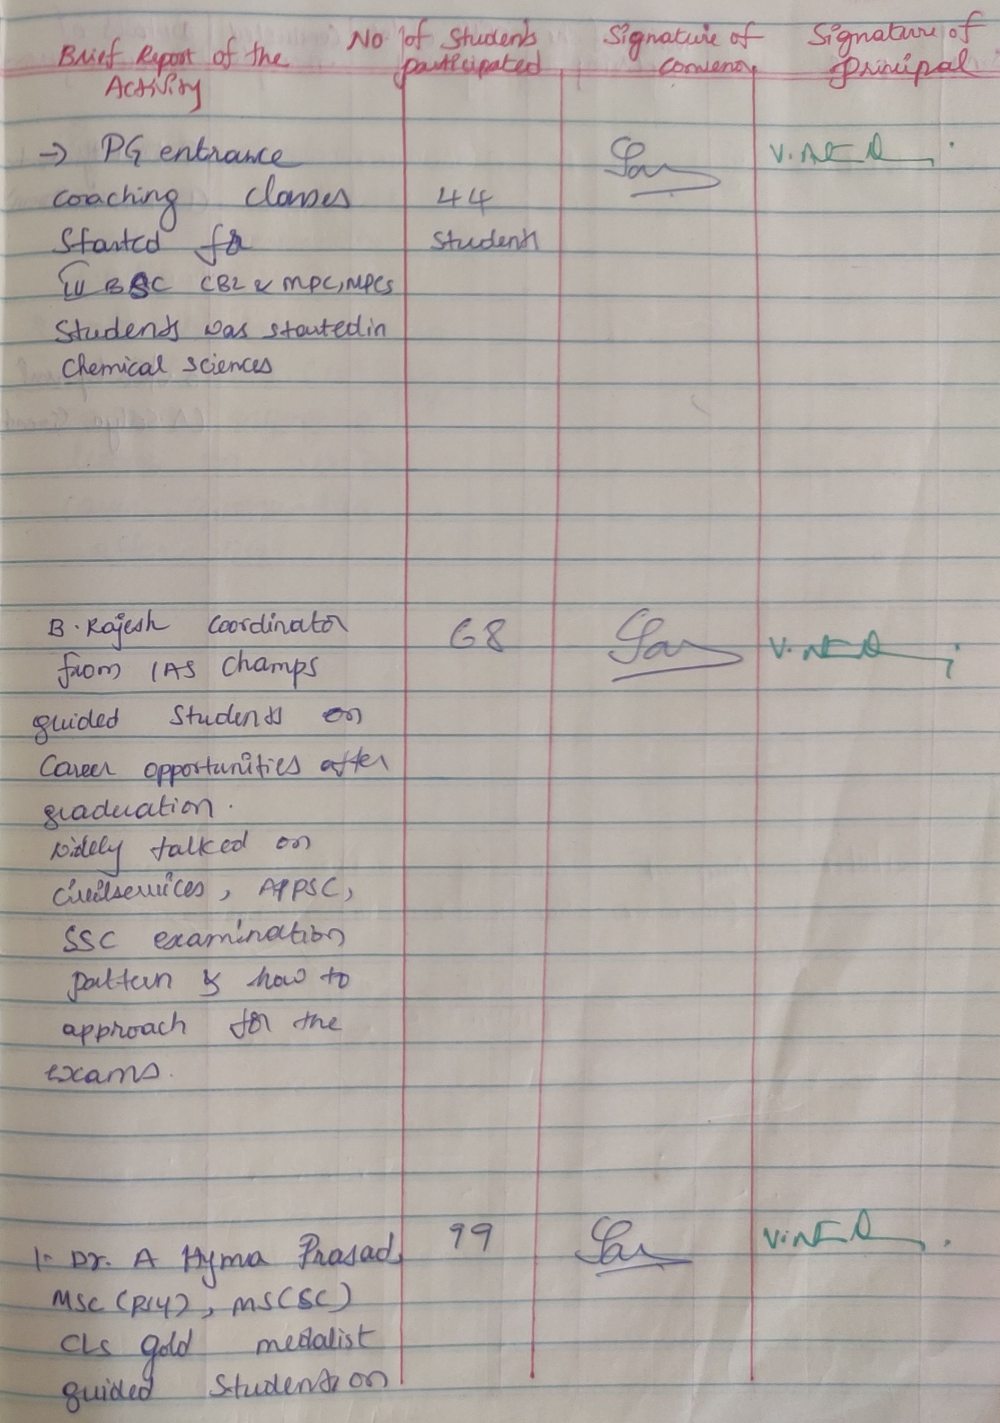 Brief Report of the Activity
No of Students participated
Signature of convenor
Signature of principal
→ PG entrance
coaching classes
Started for
III BSC CBZ & MPC, MPCS
Students was started in
Chemical sciences
44
Students
B. Rajesh Coordinator
from IAS Champs
guided Students on
Career opportunities after
graduation.
widely talked on
civilservices, APPSC,
SSC examination
pattern & how to
approach for the
exams.
68
1. Dr. A Hyma Prasad
MSC (psy), MS(SC)
CLS gold medalist
guided Students on
99